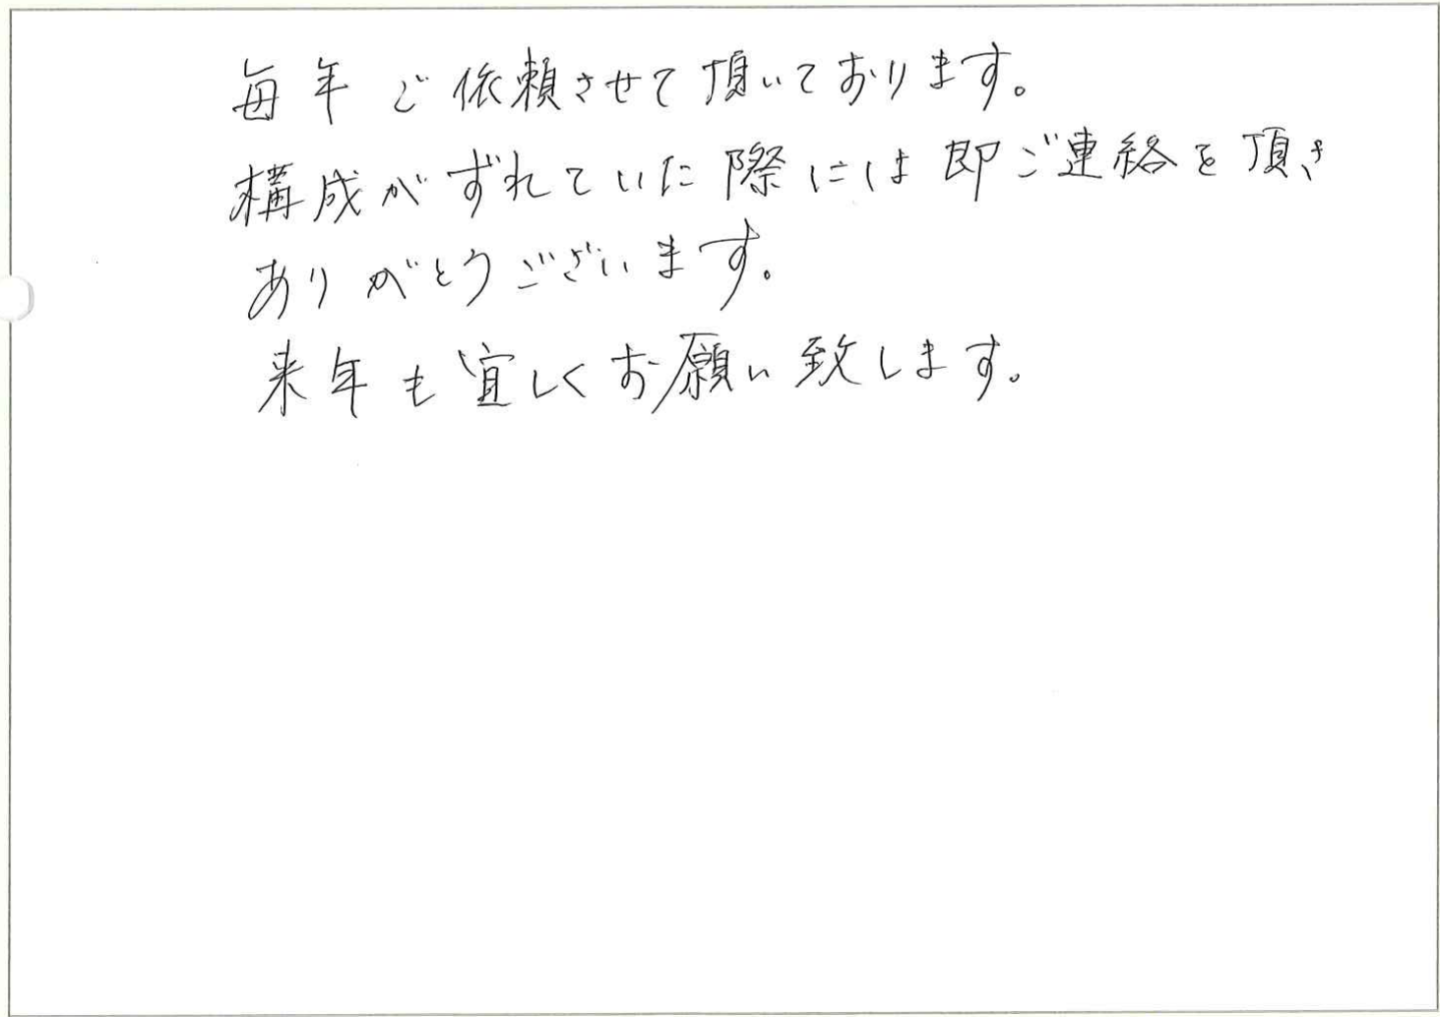 毎年ご依頼させて頂いております。
構成がずれていた際には即ご連絡を頂き
ありがとうございます。
来年も宜しくお願い致します。